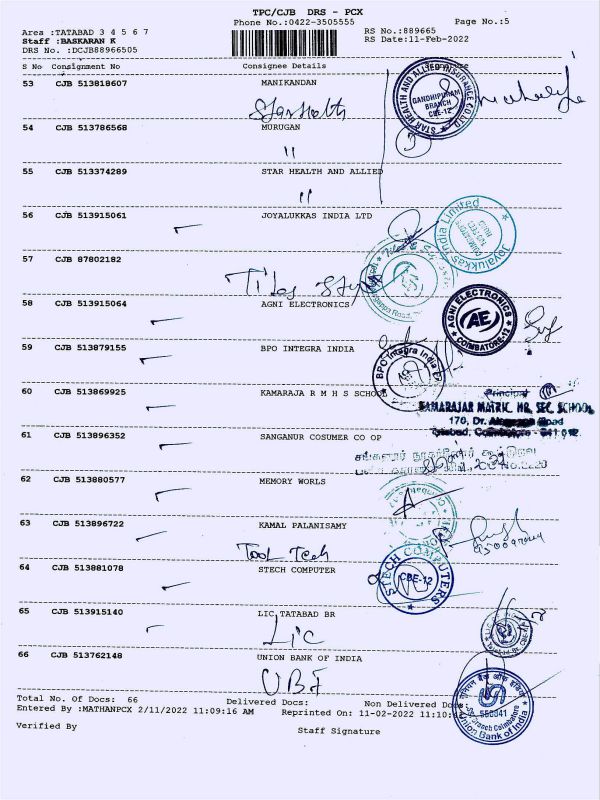 TPC/CJB DRS - PCX
Phone No.:0422-3505555 Page No.:5
Area :TATABAD 3 4 5 6 7
Staff :BASKARAN K
DRS No. :DCJB88966505
RS No.:889665
RS Date:11-Feb-2022
S No Consignment No Consignee Details Signature
53 CJB 513818607 MANIKANDAN
STAR HEALTH AND ALLIED INSURANCE CO LTD
GANDHIPURAM
BRANCH
CBE-12
54 CJB 513786568 MURUGAN
"
55 CJB 513374289 STAR HEALTH AND ALLIED
"
56 CJB 513915061 JOYALUKKAS INDIA LTD
Joyalukkas India Limited
57 CJB 87802182
Tiles
58 CJB 513915064 AGNI ELECTRONICS
AGNI ELECTRONICS
AE
COIMBATORE-12
59 CJB 513879155 BPO INTEGRA INDIA
BPO Integra India
60 CJB 513869925 KAMARAJA R M H S SCHOOL
Principal
KAMARAJAR MATRIC. HR. SEC. SCHOOL
170, Dr. Road
Tatabad, Coimbatore - 641 012.
61 CJB 513896352 SANGANUR COSUMER CO OP
62 CJB 513880577 MEMORY WORLS
63 CJB 513896722 KAMAL PALANISAMY
Tool Tech
64 CJB 513881078 STECH COMPUTER
STECH COMPUTERS
CBE-12
65 CJB 513915140 LIC TATABAD BR
LIC
66 CJB 513762148 UNION BANK OF INDIA
UBI
Union Bank of India
Total No. Of Docs: 66 Delivered Docs: Non Delivered Docs:
Entered By :MATHANPCX 2/11/2022 11:09:16 AM Reprinted On: 11-02-2022 11:10:
Verified By Staff Signature